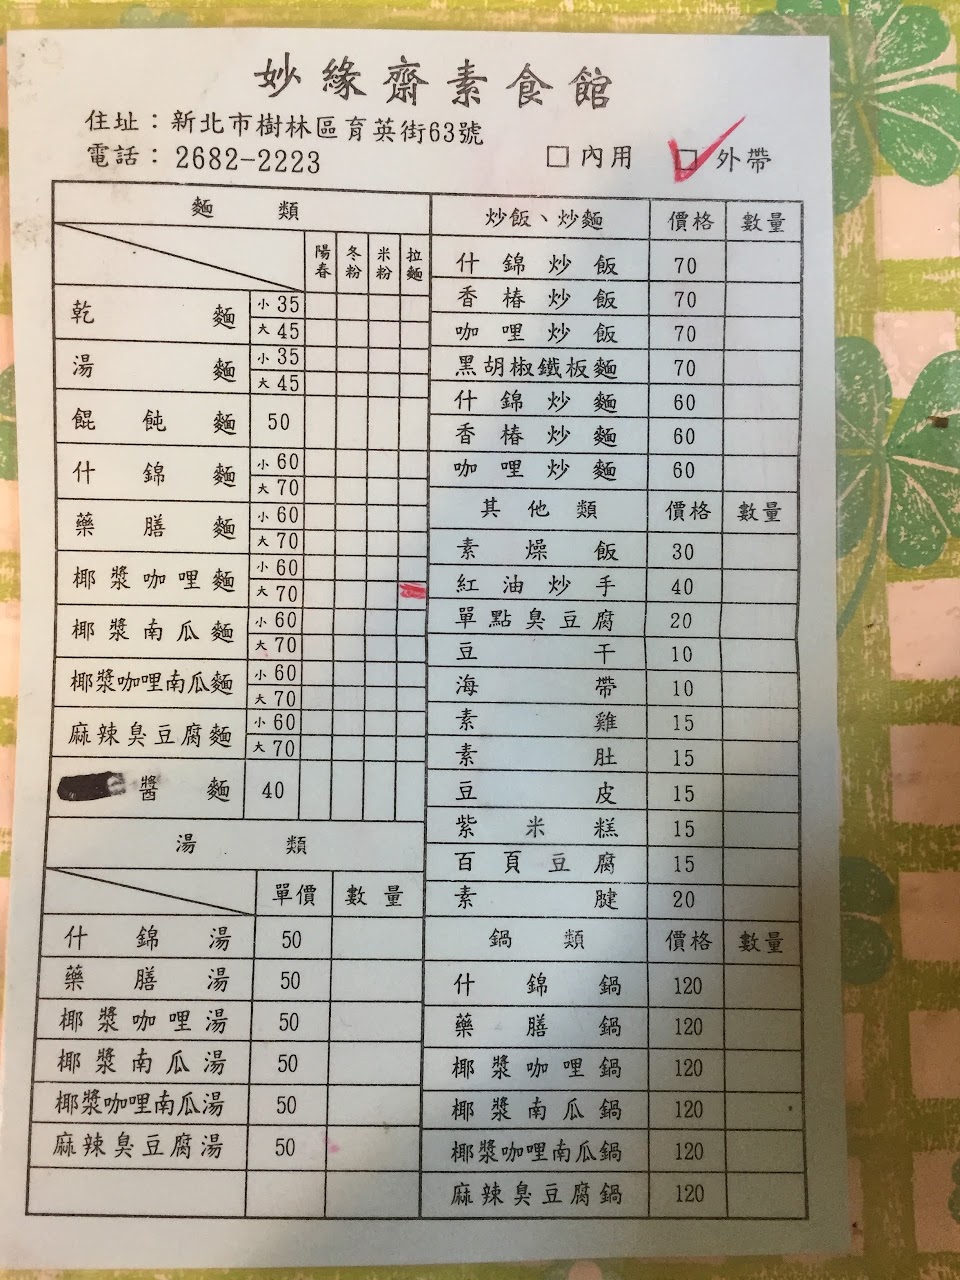 妙緣齋素食館
住址：新北市樹林區育英街63號
電話：2682-2223
□內用 □外帶
麵 類
陽春 冬粉 米粉 拉麵
乾麵 小35
大45
湯麵 小35
大45
餛飩麵 50
什錦麵 小60
大70
藥膳麵 小60
大70
椰漿咖哩麵 小60
大70
椰漿南瓜麵 小60
大70
椰漿咖哩南瓜麵 小60
大70
麻辣臭豆腐麵 小60
大70
醬麵 40
湯 類
單價 數量
什錦湯 50
藥膳湯 50
椰漿咖哩湯 50
椰漿南瓜湯 50
椰漿咖哩南瓜湯 50
麻辣臭豆腐湯 50
炒飯、炒麵 價格 數量
什錦炒飯 70
香椿炒飯 70
咖哩炒飯 70
黑胡椒鐵板麵 70
什錦炒麵 60
香椿炒麵 60
咖哩炒麵 60
其他類 價格 數量
素燥飯 30
紅油炒手 40
單點臭豆腐 20
豆干 10
海帶 10
素雞 15
素肚 15
豆皮 15
紫米糕 15
百頁豆腐 15
素腱 20
鍋類 價格 數量
什錦鍋 120
藥膳鍋 120
椰漿咖哩鍋 120
椰漿南瓜鍋 120
椰漿咖哩南瓜鍋 120
麻辣臭豆腐鍋 120